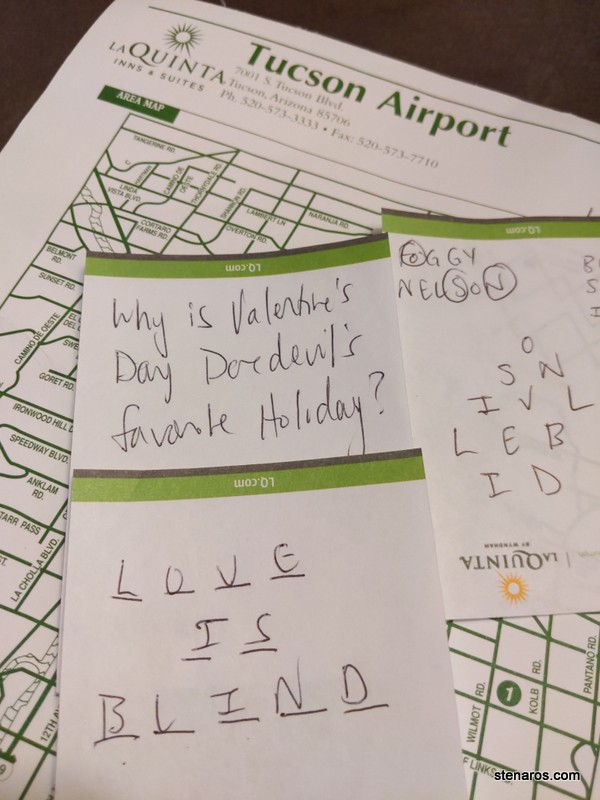 LAQUINTA
INNS & SUITES
Tucson Airport
7001 S. Tucson Blvd.
Tucson, Arizona 85706
Ph. 520-573-3333 • Fax: 520-573-7710
AREA MAP
TANGERINE RD.
LINDA
VISTA BLVD.
CAMINO DE
OESTE
THORNYDALE RD.
SHANNON RD.
LAMBERT LN
NARANJA RD.
CORTARO
FARMS RD.
OVERTON RD.
BELMONT
RD.
SUNSET RD.
CAMINO DE OESTE
GORET RD.
IRONWOOD HILL D
SPEEDWAY BLVD.
ANKLAM
RD.
STARR PASS
LA CHOLLA BLVD.
12TH AV
LQ.com
Why is Valentine's
Day Daredevil's
favorite Holiday?
LQ.com
LOVE
IS
BLIND
LQ.com
FOGGY
NELSON
B
S
I
O
S N
I V L
L E B
I D
LAQUINTA
BY WYNDHAM
1
WILMOT RD.
KOLB RD.
PANTANO RD.
F LINKS
stenaros.com